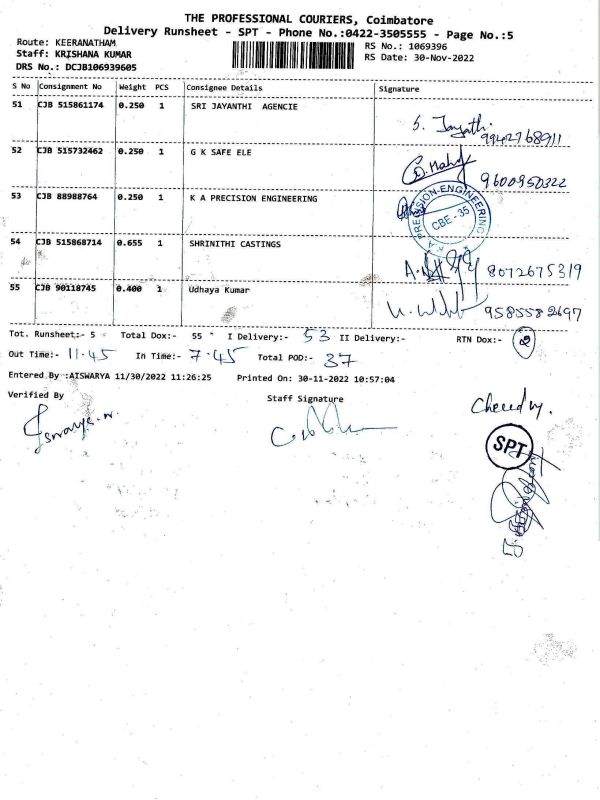 THE PROFESSIONAL COURIERS, Coimbatore
Delivery Runsheet - SPT - Phone No.:0422-3505555 - Page No.:5
Route: KEERANATHAM
RS No.: 1069396
Staff: KRISHANA KUMAR
RS Date: 30-Nov-2022
DRS No.: DCJB106939605
S No Consignment No Weight PCS Consignee Details Signature
51 CJB 515861174 0.250 1 SRI JAYANTHI AGENCIE
S. Jayathi
9942768911
52 CJB 515732462 0.250 1 G K SAFE ELE
9600950322
53 CJB 88988764 0.250 1 K A PRECISION ENGINEERING
K A PRECISION-ENGINEERING
CBE-35
54 CJB 515868714 0.655 1 SHRINITHI CASTINGS
8072675319
55 CJB 90118745 0.400 1 Udhaya Kumar
9585582697
Tot. Runsheet:- 5 Total Dox:- 55 I Delivery:- 53 II Delivery:- RTN Dox:- 2
Out Time:- 11.45 In Time:- 7.45 Total POD:- 37
Entered By :AISWARYA 11/30/2022 11:26:25 Printed On: 30-11-2022 10:57:04
Verified By Staff Signature
SPT